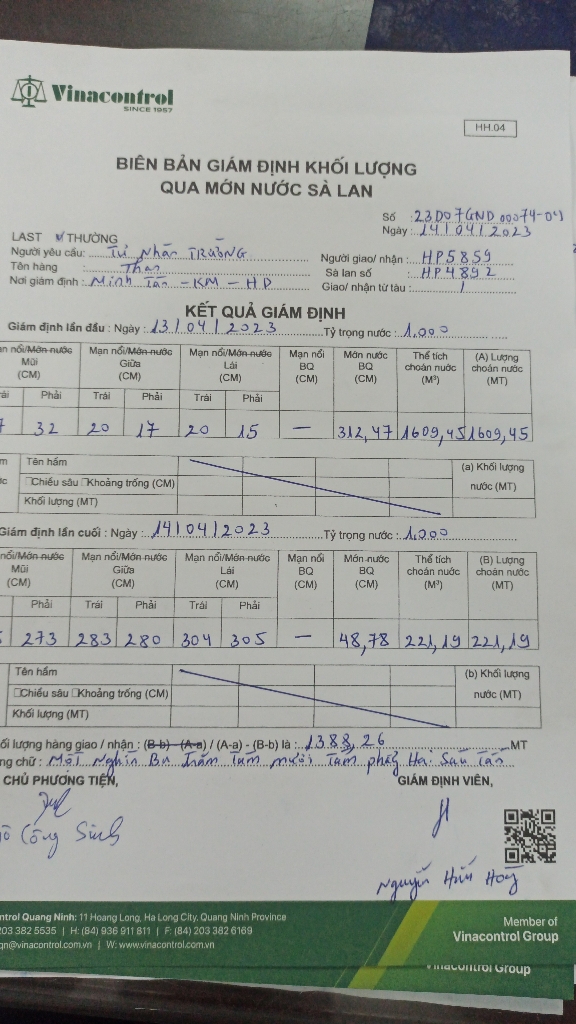 Vinacontrol
SINCE 1957
HH.04
BIÊN BẢN GIÁM ĐỊNH KHỐI LƯỢNG
QUA MỚN NƯỚC SÀ LAN
Số : 23D07GND 00074-04
Ngày : 14/04/2023
LAST THƯỜNG
Người yêu cầu: Tư Nhân TRƯỜNG Người giao/ nhận : HP5859
Tên hàng : Than Sà lan số : HP4892
Nơi giám định : Minh Tân - KM - HD Giao/ nhận từ tàu : /
KẾT QUẢ GIÁM ĐỊNH
Giám định lần đầu : Ngày : 13/04/2023 Tỷ trọng nước : 1,000
nổi/Mớn nước Mũi (CM) Mạn nổi/Mớn nước Giữa (CM) Mạn nổi/Mớn nước Lái (CM) Mạn nổi BQ (CM) Mớn nước BQ (CM) Thể tích choán nước (M³) (A) Lượng choán nước (MT)
Phải Trái Phải Trái Phải
32 20 17 20 15 — 312,47 1609,45 1609,45
Tên hầm (a) Khối lượng nước (MT)
Chiều sâu Khoảng trống (CM)
Khối lượng (MT)
Giám định lần cuối : Ngày : 14/04/2023 Tỷ trọng nước : 1,000
nổi/Mớn nước Mũi (CM) Mạn nổi/Mớn nước Giữa (CM) Mạn nổi/Mớn nước Lái (CM) Mạn nổi BQ (CM) Mớn nước BQ (CM) Thể tích choán nước (M³) (B) Lượng choán nước (MT)
Phải Trái Phải Trái Phải
273 283 280 304 305 — 48,78 221,19 221,19
Tên hầm (b) Khối lượng nước (MT)
Chiều sâu Khoảng trống (CM)
Khối lượng (MT)
lượng hàng giao / nhận : (B-b) - (A-a) / (A-a) - (B-b) là : 1388,26 MT
chữ : Một Nghìn Ba Trăm Tám mươi Tám phẩy Hai Sáu Tấn
CHỦ PHƯƠNG TIỆN, GIÁM ĐỊNH VIÊN,
Công Sinh
Nguyễn Hữu
Quang Ninh: 11 Hoang Long, Ha Long City, Quang Ninh Province
203 382 5535 | H: (84) 936 911 811 | F: (84) 203 382 6169
qn@vinacontrol.com.vn | W: www.vinacontrol.com.vn
Member of
Vinacontrol Group
Vinacontrol Group